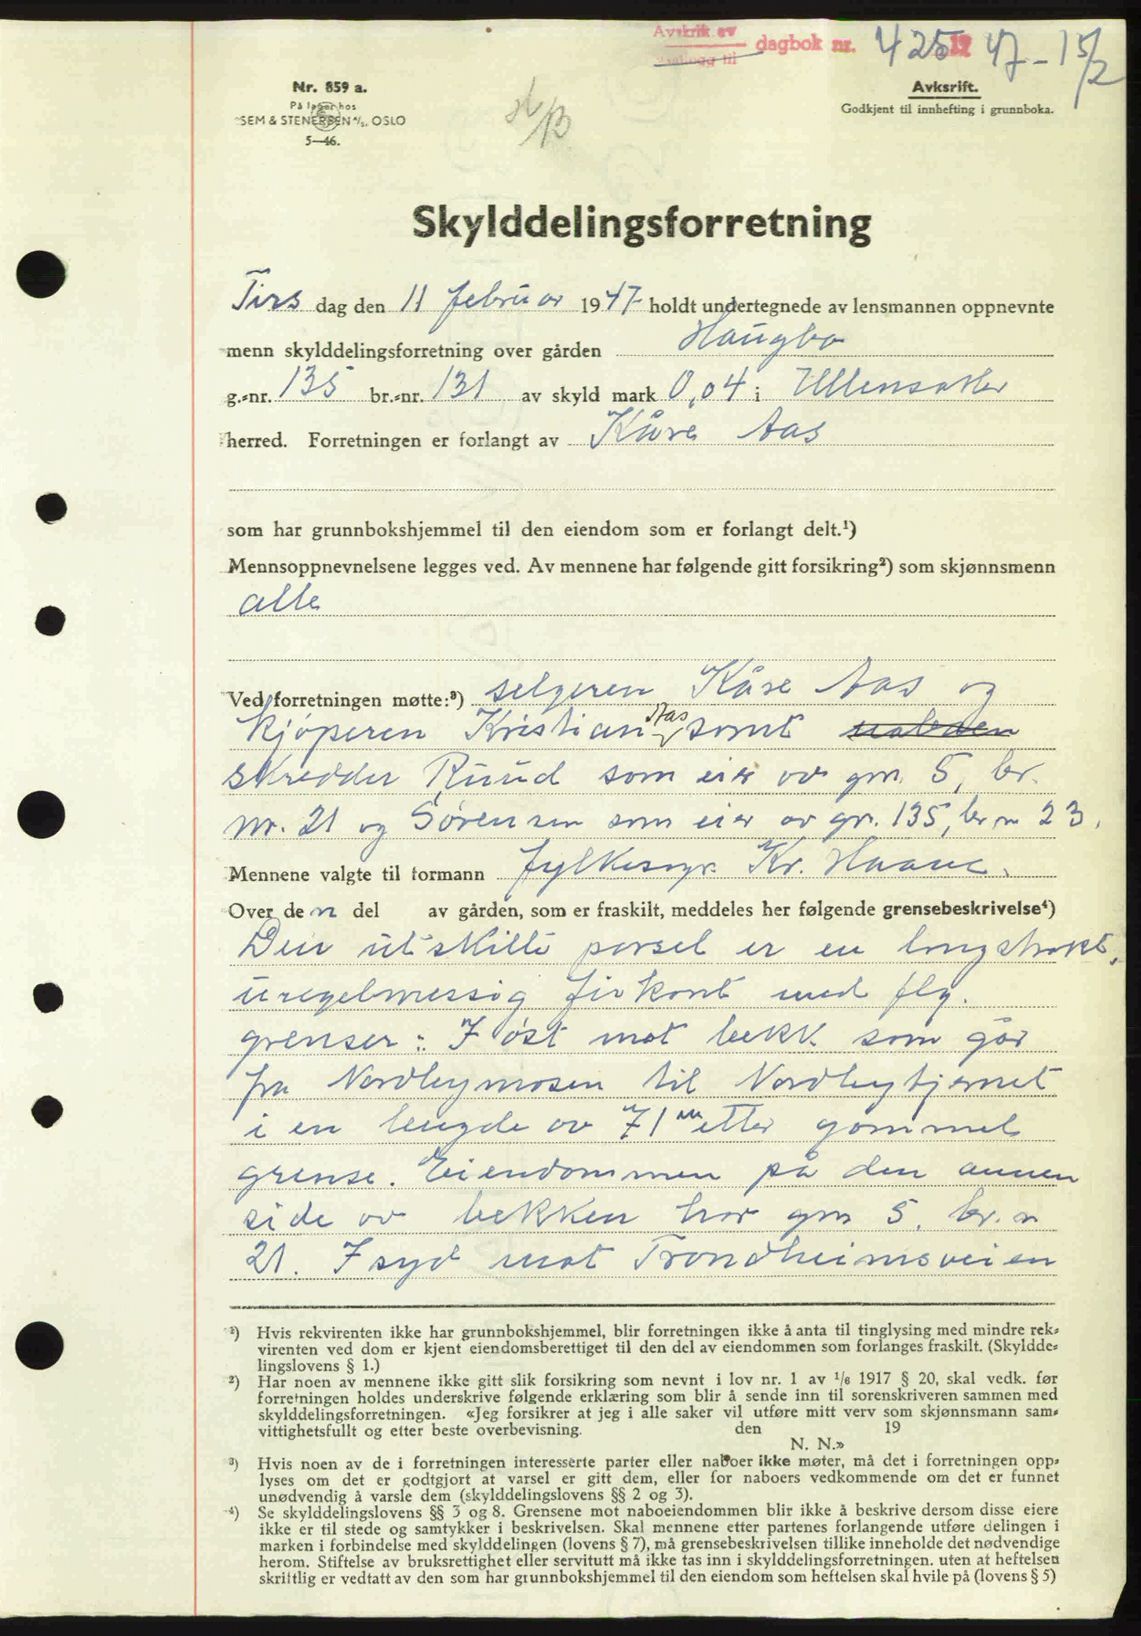 Avskrift av dagbok nr. 425 19 47 - 15/2
Nr. 859 a.
På lager hos
SEM & STENERSEN A/S. OSLO
5—46.
Avksrift.
Godkjent til innhefting i grunnboka.
Skylddelingsforretning
Tirs dag den 11 februar 1947 holdt undertegnede av lensmannen oppnevnte
menn skylddelingsforretning over gården Haugbo
g.-nr. 135 br.-nr. 131 av skyld mark 0,04 i Ullensaker
herred. Forretningen er forlangt av Kåre Aas
som har grunnbokshjemmel til den eiendom som er forlangt delt.¹)
Mennsoppnevnelsene legges ved. Av mennene har følgende gitt forsikring²) som skjønnsmenn
alle
Ved forretningen møtte:³) selgeren Kåre Aas og
kjøperen Kristian Aas samt naboen
skredder Ruud som eier av gnr. 5, br.
nr. 21 og Sørensen som eier av gr. 135, br n 23.
Mennene valgte til formann fylkesagr. Kr. Haave.
Over den del av gården, som er fraskilt, meddeles her følgende grensebeskrivelse⁴)
Den utskilte parsel er en langstrakt,
uregelmessig firkant med flg.
grenser: I øst mot bekk som går
fra Nordbymosen til Nordbytjernet
i en lengde av 71 m etter gammel
grense. Eiendommen på den annen
side av bekken har gnr 5. br. n
21. I syd mot Trondheimsveien
¹) Hvis rekvirenten ikke har grunnbokshjemmel, blir forretningen ikke å anta til tinglysing med mindre rek-
virenten ved dom er kjent eiendomsberettiget til den del av eiendommen som forlanges fraskilt. (Skyldde-
lingslovens § 1.)
²) Har noen av mennene ikke gitt slik forsikring som nevnt i lov nr. 1 av 1/6 1917 § 20, skal vedk. før
forretningen holdes underskrive følgende erklæring som blir å sende inn til sorenskriveren sammen med
skylddelingsforretningen. «Jeg forsikrer at jeg i alle saker vil utføre mitt verv som skjønnsmann sam-
vittighetsfullt og etter beste overbevisning. den 19
N. N.»
³) Hvis noen av de i forretningen interesserte parter eller naboer ikke møter, må det i forretningen opp-
lyses om det er godtgjort at varsel er gitt dem, eller for naboers vedkommende om det er funnet
unødvendig å varsle dem (skylddelingslovens §§ 2 og 3).
⁴) Se skylddelingslovens §§ 3 og 8. Grensene mot naboeiendommen blir ikke å beskrive dersom disse eiere
ikke er til stede og samtykker i beskrivelsen. Skal mennene etter partenes forlangende utføre delingen i
marken i forbindelse med skylddelingen (lovens § 7), må grensebeskrivelsen tillike inneholde det nødvendige
herom. Stiftelse av bruksrettighet eller servitutt må ikke tas inn i skylddelingsforretningen. uten at heftelsen
skriftlig er vedtatt av den som har grunnbokshjemmel til den eiendom som heftelsen skal hvile på (lovens § 5)